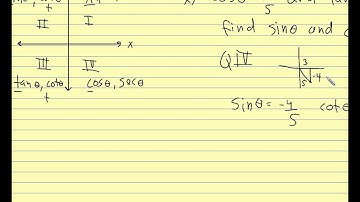 II I
x
III IV
tanθ, cotθ cosθ, secθ
t
cosθ
5
find sinθ and
QIV
3
5 -4
sinθ = -4/5 cotθ